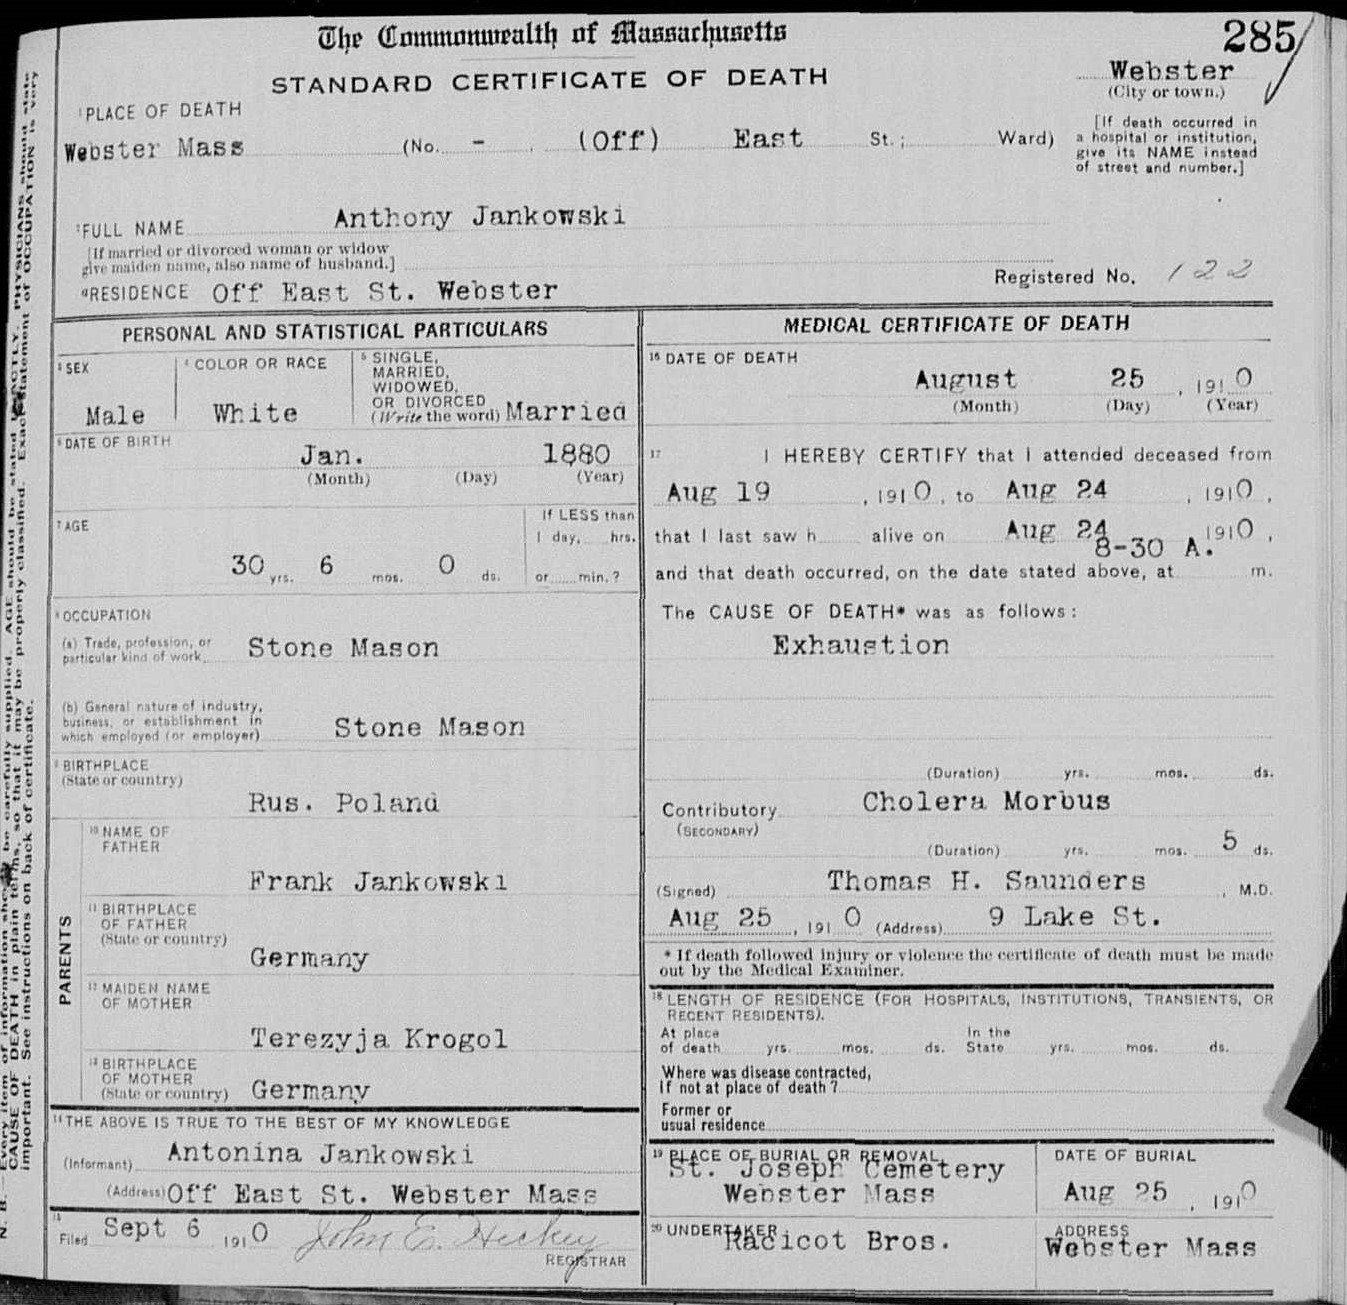 The Commonwealth of Massachusetts
285
STANDARD CERTIFICATE OF DEATH
Webster
(City or town.)
1 PLACE OF DEATH
Webster Mass (No. - (Off) East St.; Ward)
[If death occurred in
a hospital or institution,
give its NAME instead
of street and number.]
2 FULL NAME Anthony Jankowski
[If married or divorced woman or widow
give maiden name, also name of husband.]
Registered No. 122
a RESIDENCE Off East St. Webster
PERSONAL AND STATISTICAL PARTICULARS
3 SEX
Male
4 COLOR OR RACE
White
5 SINGLE,
MARRIED,
WIDOWED,
OR DIVORCED
(Write the word) Married
6 DATE OF BIRTH
Jan. 1880
(Month) (Day) (Year)
7 AGE
30 yrs. 6 mos. 0 ds.
If LESS than
1 day, hrs.
or min.?
8 OCCUPATION
(a) Trade, profession, or
particular kind of work Stone Mason
(b) General nature of industry,
business, or establishment in
which employed (or employer) Stone Mason
9 BIRTHPLACE
(State or country)
Rus. Poland
PARENTS
10 NAME OF
FATHER
Frank Jankowski
11 BIRTHPLACE
OF FATHER
(State or country)
Germany
12 MAIDEN NAME
OF MOTHER
Terezyja Krogol
13 BIRTHPLACE
OF MOTHER
(State or country) Germany
14 THE ABOVE IS TRUE TO THE BEST OF MY KNOWLEDGE
(Informant) Antonina Jankowski
(Address) Off East St. Webster Mass
15
Filed Sept 6 1910 John E. Hickey
REGISTRAR
MEDICAL CERTIFICATE OF DEATH
16 DATE OF DEATH
August 25, 1910
(Month) (Day) (Year)
17 I HEREBY CERTIFY that I attended deceased from
Aug 19, 1910, to Aug 24, 1910,
that I last saw h alive on Aug 24 1910,
8-30 A.
and that death occurred, on the date stated above, at m.
The CAUSE OF DEATH* was as follows:
Exhaustion
(Duration) yrs. mos. ds.
Contributory Cholera Morbus
(SECONDARY)
(Duration) yrs. mos. 5 ds.
(Signed) Thomas H. Saunders, M.D.
Aug 25, 1910 (Address) 9 Lake St.
* If death followed injury or violence the certificate of death must be made
out by the Medical Examiner.
18 LENGTH OF RESIDENCE (FOR HOSPITALS, INSTITUTIONS, TRANSIENTS, OR
RECENT RESIDENTS).
At place
of death yrs. mos. ds.
In the
State yrs. mos. ds.
Where was disease contracted,
if not at place of death?
Former or
usual residence
19 PLACE OF BURIAL OR REMOVAL
St. Joseph Cemetery
Webster Mass
DATE OF BURIAL
Aug 25, 1910
20 UNDERTAKER
Racicot Bros.
ADDRESS
Webster Mass
N. B. Every item of information be carefully supplied. AGE should be stated EXACTLY. PHYSICIANS should state
CAUSE OF DEATH in plain terms, so that it may be properly classified. Exact statement of OCCUPATION is very
important. See instructions on back of certificate.